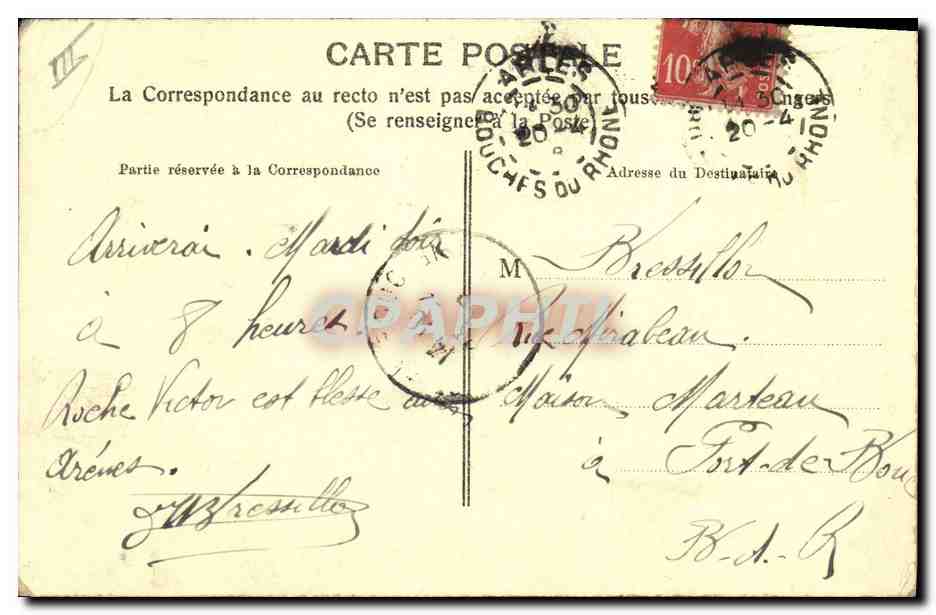 III
CARTE POSTALE
La Correspondance au recto n'est pas acceptée par tous
(Se renseigner à la Poste)
Partie réservée à la Correspondance
Adresse du Destinataire
ARLES
30
20-4
BOUCHES DU RHONE
10c
ARLES
30
20-4
DU RHONE
Arriverai. Mardi soir
à 8 heures
Roche Victor est blessé aux
Arènes.
Bressillon
M Bressillon
Rue Mirabeau.
Maison Marteau
à Port-de-Bouc
B-d-R
CPAPHIL